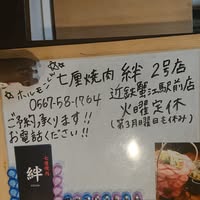 ☆ホルモン☆
七厘焼肉 絆 2号店
0567-58-1764
近鉄蟹江駅前店
ご予約承ります!!
お電話ください!!
火曜定休
(第3月曜日も休み)
七厘焼肉
絆